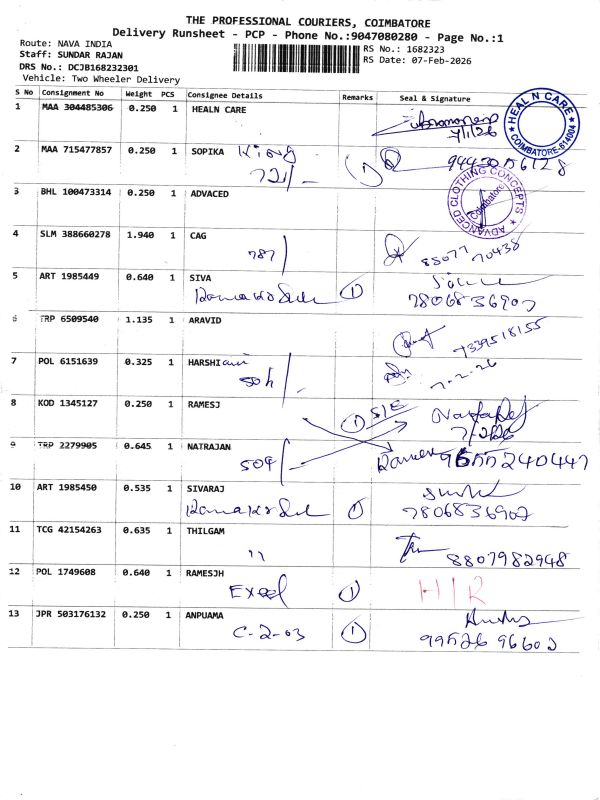 THE PROFESSIONAL COURIERS, COIMBATORE
Delivery Runsheet - PCP - Phone No.:9047080280 - Page No.:1
Route: NAVA INDIA
Staff: SUNDAR RAJAN
DRS No.: DCJB168232301
Vehicle: Two Wheeler Delivery
RS No.: 1682323
RS Date: 07-Feb-2026
S No Consignment No Weight PCS Consignee Details Remarks Seal & Signature
1 MAA 304485306 0.250 1 HEALN CARE
HEAL N CARE COIMBATORE-614004
2 MAA 715477857 0.250 1 SOPIKA King
721/-
3 BHL 100473314 0.250 1 ADVACED
ADVANCED CLOTHING CONCEPTS Coimbatore
4 SLM 388660278 1.940 1 CAG
787 88077 70438
5 ART 1985449 0.640 1 SIVA
1 7806836907
6 TRP 6509540 1.135 1 ARAVID
7339518155
7 POL 6151639 0.325 1 HARSHI
7-2-26
8 KOD 1345127 0.250 1 RAMESJ
1 S/E
7/2/26
9 TRP 2279905 0.645 1 NATRAJAN
509
10 ART 1985450 0.535 1 SIVARAJ
1 7806836907
11 TCG 42154263 0.635 1 THILGAM
" 8807982948
12 POL 1749608 0.640 1 RAMESJH
Excel 1 HIR
13 JPR 503176132 0.250 1 ANPUAMA
C-2-03 1 99526 96602